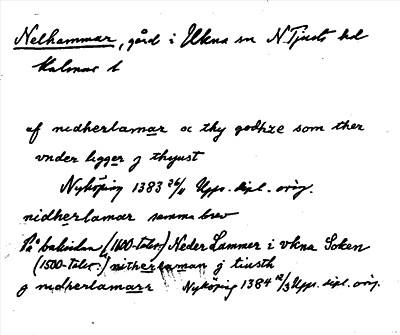 Nelhammar, gård i Ukna sn N Tjusts hd
Kalmar l
af nidherlamar oc thy godhze som ther
vnder ligger j thyust
Nyköping 1383 26/11 Upps. dipl. orig.
nidherlamar samma brev
På baksidan (1600-talet) Neder Lammer i vkna Soken
(1500-talet:) nitherlaman j tiusth
j nidherlamarr Nyköping 1384 12/3 Upps. dipl. orig.